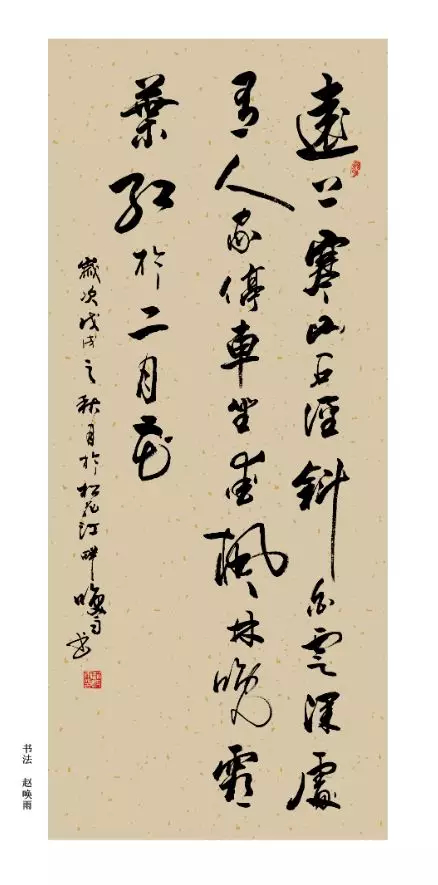 遠上寒山石徑斜白雲深處
有人家停車坐愛楓林晚霜
葉紅於二月花
歲次戊戌之秋月於松花江畔喚雨书
书法 赵唤雨